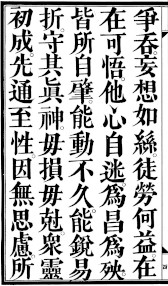 爭吞。妄想如絲。徒勞何益。在
在可悟。他心自迷。爲昌爲殃。
皆所自肇。能動不久。能銳易
折。守其眞神。毋損毋尅。衆靈
初成。先通至性。因無思慮。所